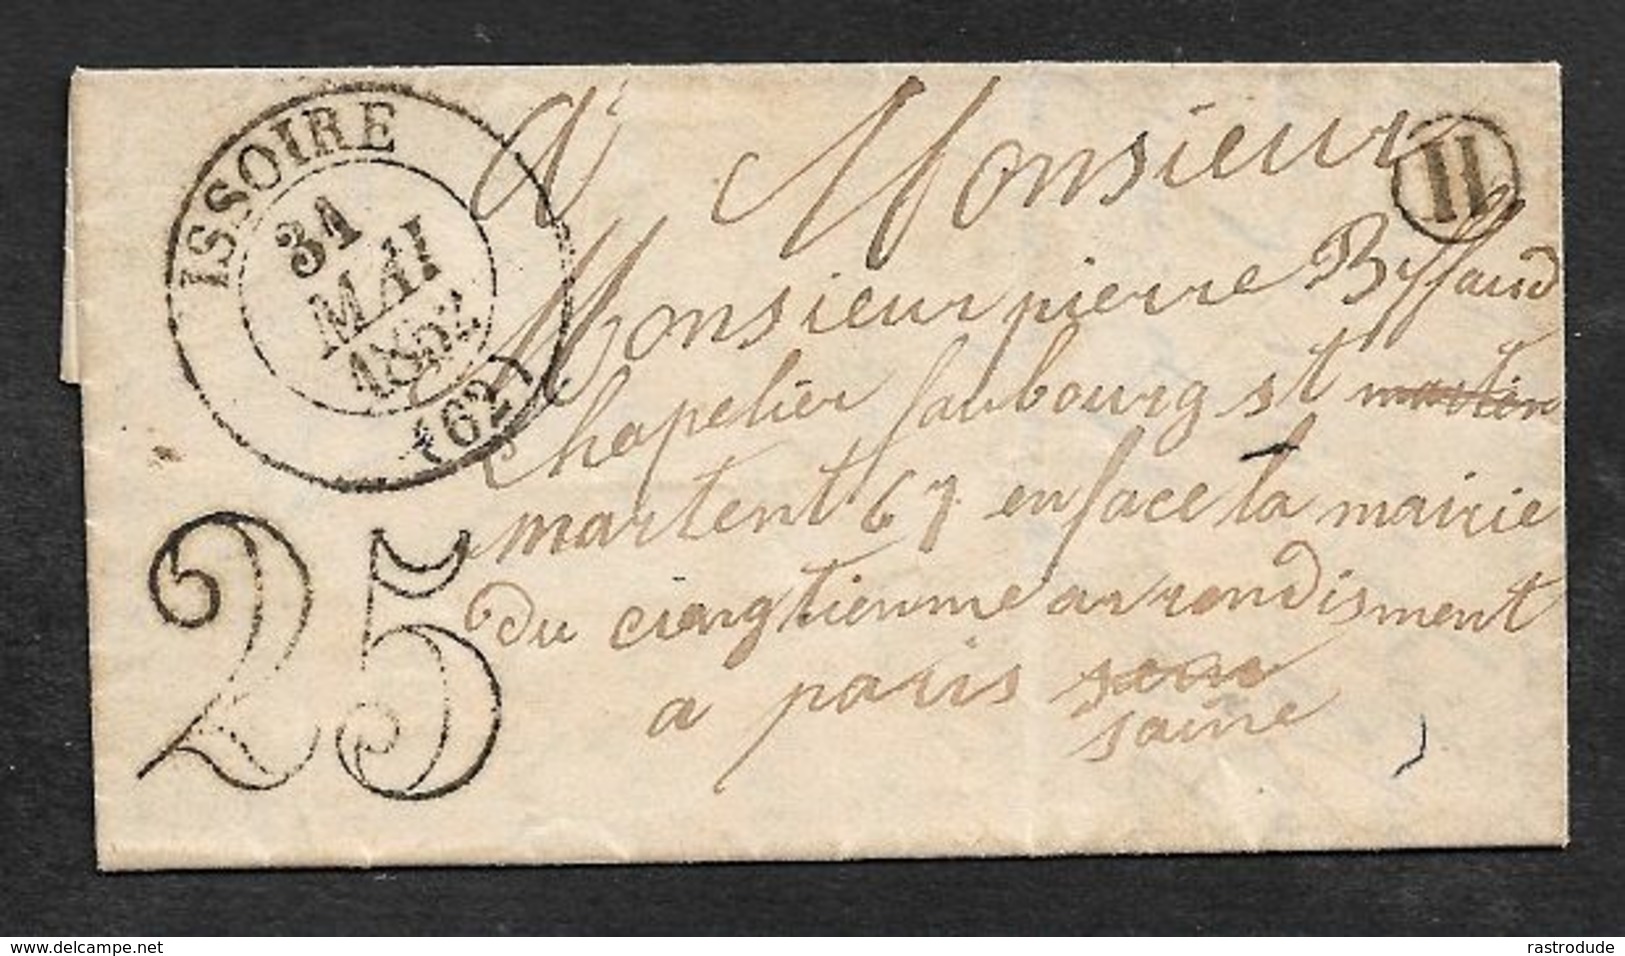 ISSOIRE
31
MAI
1852
(62)
25
H
A Monsieur
Monsieur pierre Byffaud
Chapelier faubourg st martin
martent 67 en face la mairie
Du cienqtienme arrondisment
a paris
saine
www.delcampe.net
rastrodude